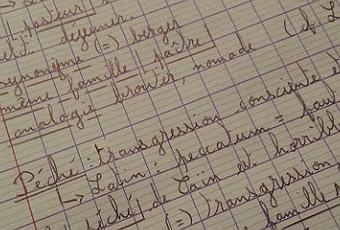 →
pasteur
déjeuner.
synonyme (=) berger
même famille paître
analogie brouter, nomade (cf L
Péché : transgression consciente
↳ Latin : peccatum = faut
péché de Caïn est horribl
(=) transgression
famille